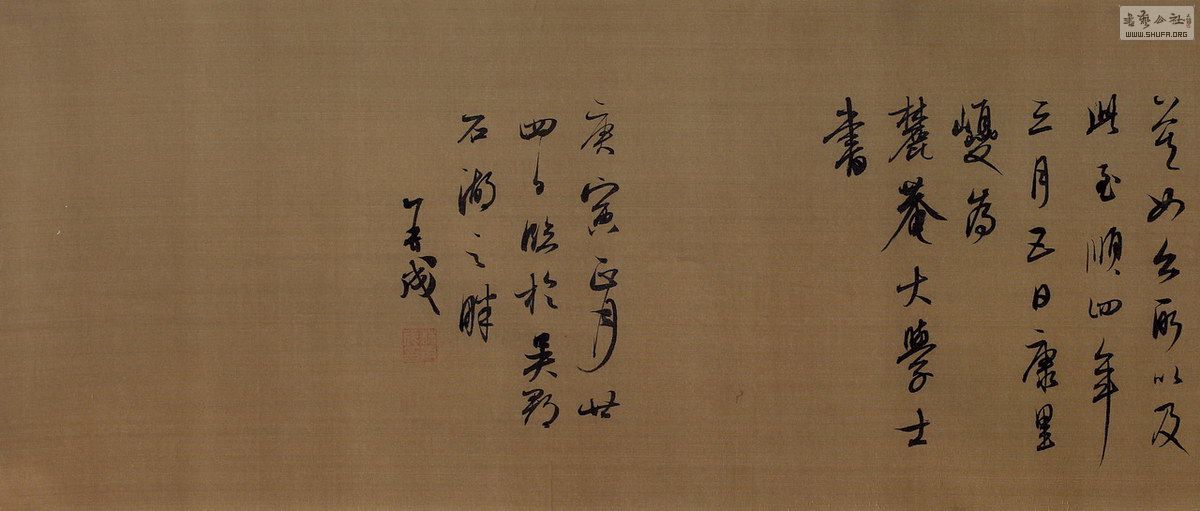 書藝公社
WWW.SHUFA.ORG
如公所以及
此至順四年
三月五日康里
巎為
麓菴大學士
書
庚寅正月廿
四日臨於吳郡
石湖之畔
成